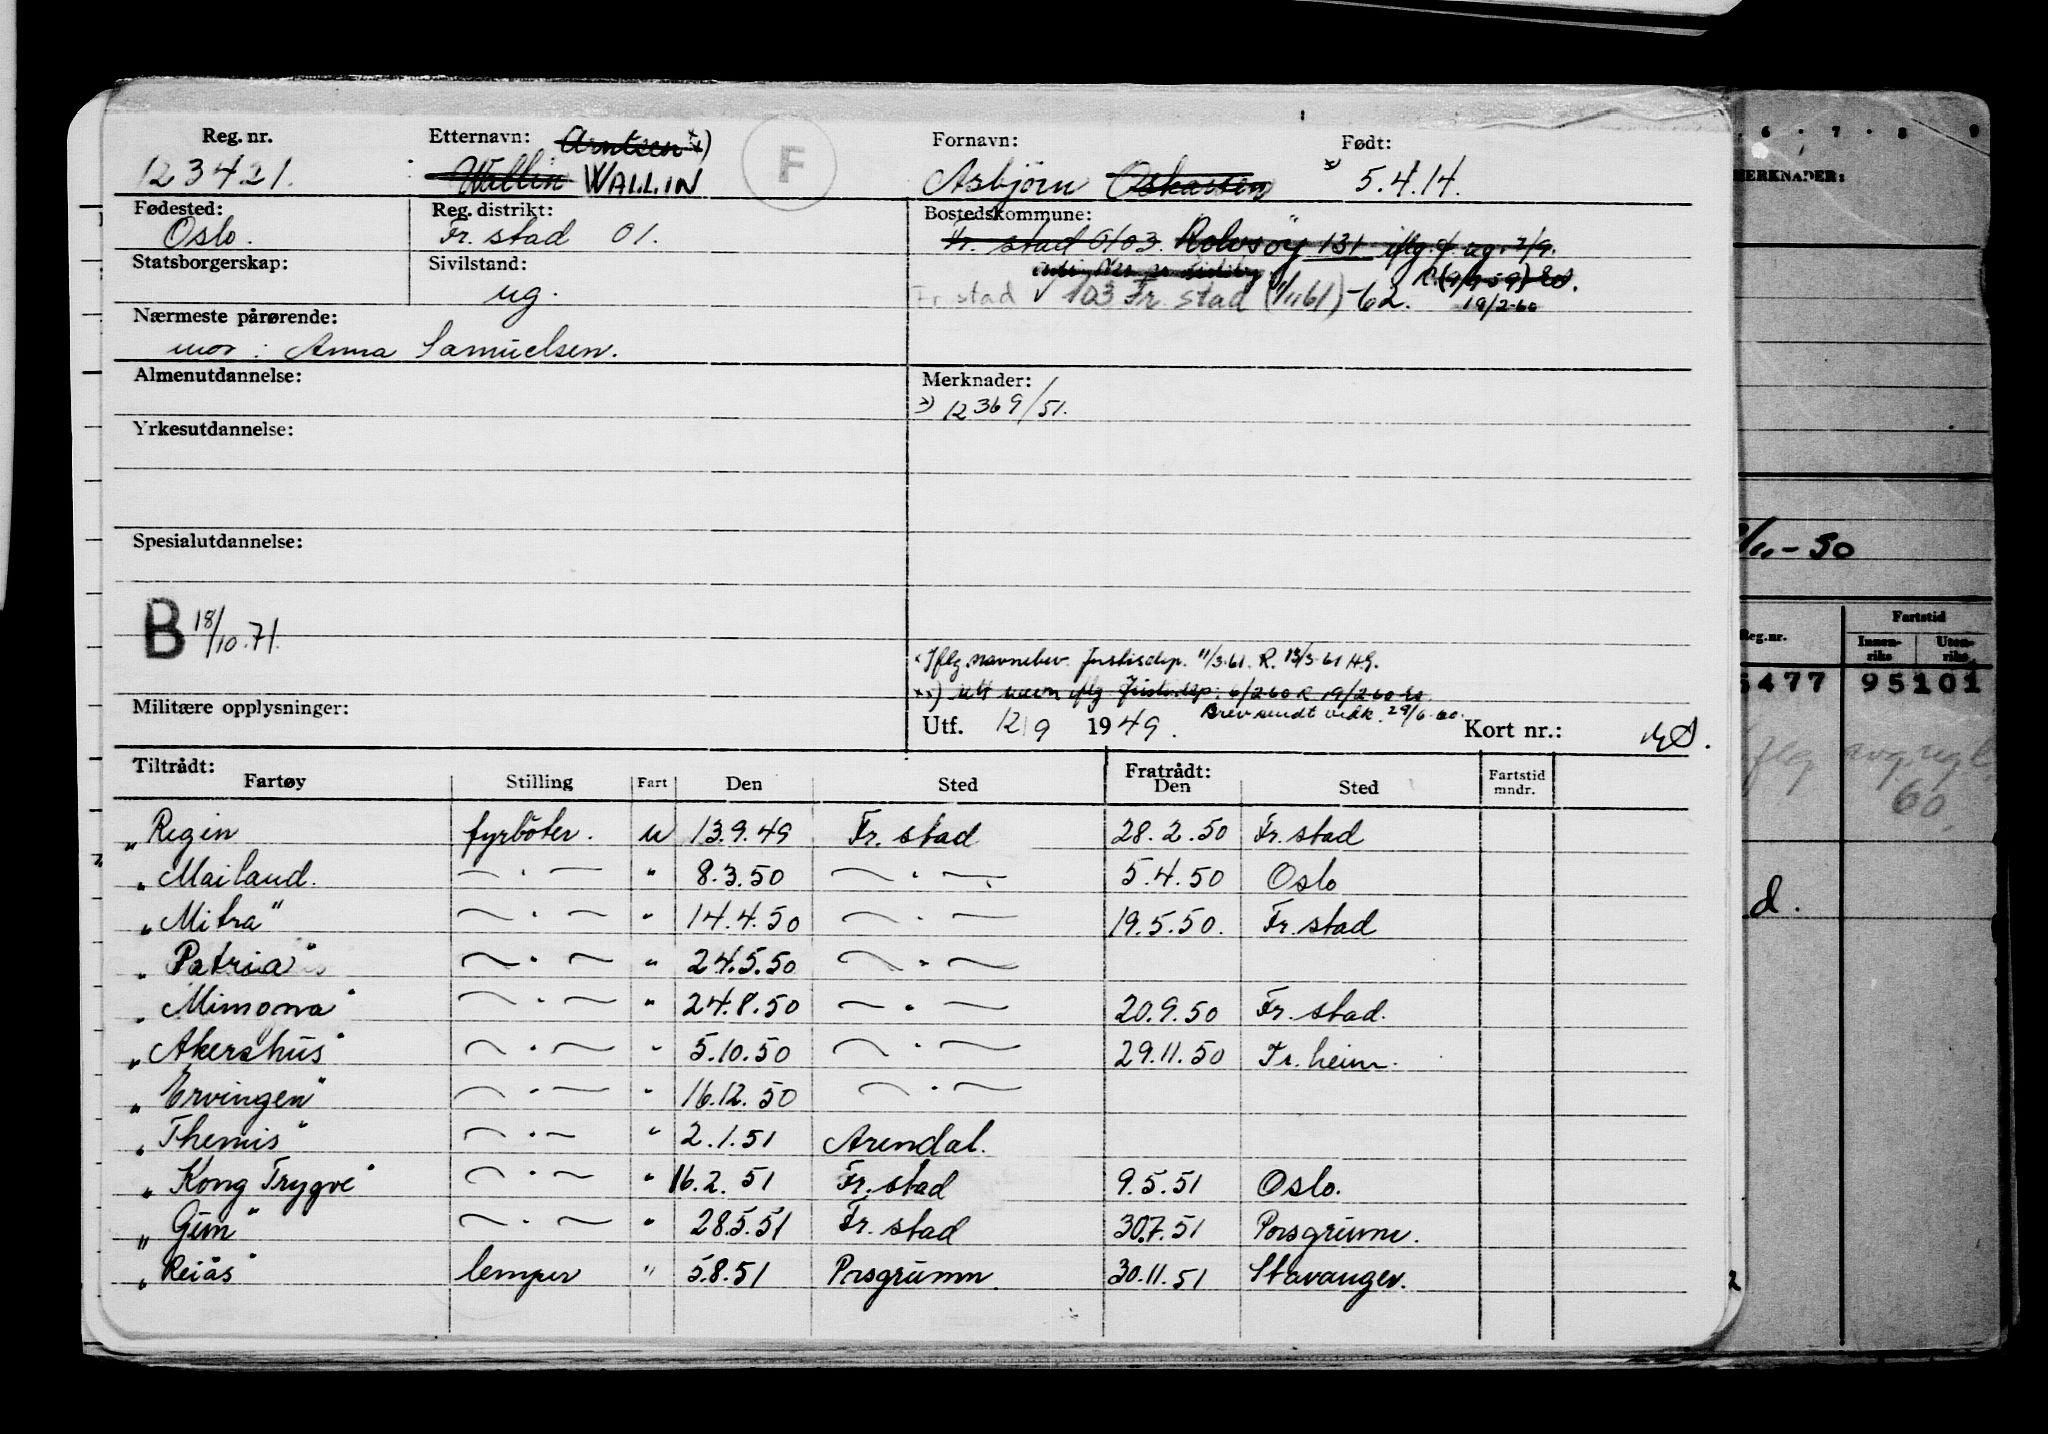 Reg. nr. Etternavn: Arntsen x) F Fornavn: Født:
123421. Wallin WALLIN Asbjörn Oskarsen x) 5.4.14.
Fødested: Reg. distrikt: Bostedskommune:
Oslo. Fr. stad 01. Fr. stad 0103. Rolvsöy 131 iflg. 2/9.
Statsborgerskap: Sivilstand:
ug. Fr. stad 103 Fr. stad (1/1161) -62. 19/2-60
Nærmeste pårørende:
mor: Anna Samuelsen.
Almenutdannelse: Merknader:
x) 12369/51.
Yrkesutdannelse:
Spesialutdannelse:
B 18/10.71.
Iflg. navnebev. Justisdep. 11/3-61. R. 13/3-61 HG.
xx) navn iflg Justisdep. 6/2-60 R 19/2-60
Militære opplysninger: Brev sendt vedk. 29/6-60.
Utf. 12/9 1949. Kort nr.:
Tiltrådt: Fratrådt:
Fartøy Stilling Fart Den Sted Den Sted Fartstid mndr.
„Regin fyrböter. u 13.9.49 Fr. stad 28.2.50 Fr. stad
„Mailand. — . — " 8.3.50 — . — 5.4.50 Oslo
„Mitra" — . — " 14.4.50 — . — 19.5.50. Fr. stad
„Patria" — . — " 24.5.50 — . —
„Mimona" — . — " 24.8.50 — . — 20.9.50 Fr. stad.
„Akershus" — . — " 5.10.50 — . — 29.11.50 Tr. heim.
„Ervingen" — . — 16.12.50 — . —
„Themis" — . — " 2.1.51 Arendal.
„Kong Trygve" — . — " 16.2.51 Fr. stad 9.5.51 Oslo.
„Gim" — . — " 28.5.51 Fr. stad 30.7.51 Porsgrunn.
„Reiås" lemper " 5.8.51 Porsgrunn 30.11.51 Stavanger.
6 7 8 9
MERKNADER:
/11-50
Reg.nr. Fartstid
Innenriks Utenriks
5477 95101
iflg avg.regl.
60.
d.
2